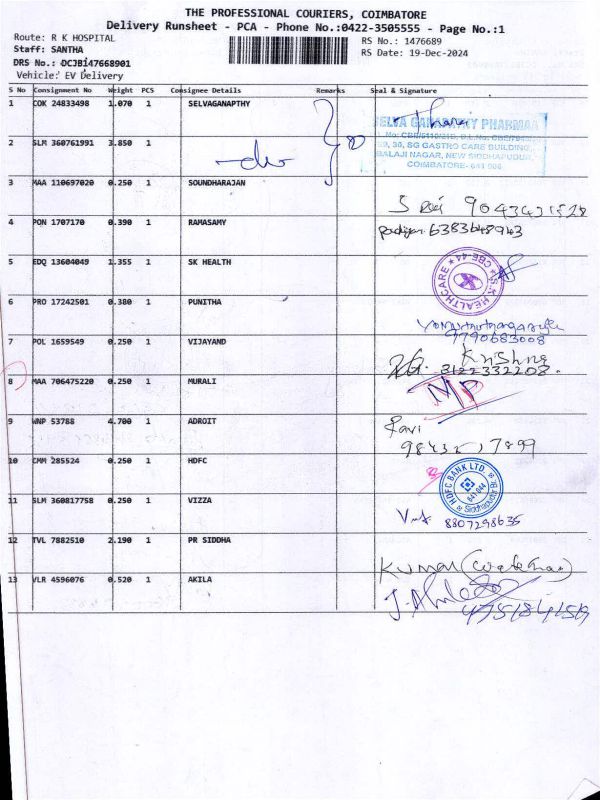 THE PROFESSIONAL COURIERS, COIMBATORE
Delivery Runsheet - PCA - Phone No.:0422-3505555 - Page No.:1
Route: R K HOSPITAL RS No.: 1476689
Staff: SANTHA RS Date: 19-Dec-2024
DRS No.: DCJB147668901
Vehicle: EV Delivery
S No Consignment No Weight PCS Consignee Details Remarks Seal & Signature
1 COK 24833498 1.070 1 SELVAGANAPTHY
SELVA GANAPATHY PHARMAA
2 SLM 360761991 3.850 1
59, 30, SG GASTRO CARE BUILDING,
BALAJI NAGAR, NEW SIDDHAPUDUR,
COIMBATORE- 641 006
3 MAA 110697020 0.250 1 SOUNDHARAJAN
4 PON 1707170 0.390 1 RAMASAMY
6383648943
5 EDQ 13604049 1.355 1 SK HEALTH
S.K HEALTHCARE CBE-44
6 PRO 17242501 0.380 1 PUNITHA
7 POL 1659549 0.250 1 VIJAYAND
9790683008
Krishna
3122332208
8 MAA 706475220 0.250 1 MURALI
N/P
9 WNP 53788 4.700 1 ADROIT
Ravi
10 CMM 285524 0.250 1 HDFC
HDFC BANK LTD.
11 SLM 360817758 0.250 1 VIZZA
8807298635
12 TVL 7882510 2.190 1 PR SIDDHA
Kumar
13 VLR 4596076 0.520 1 AKILA